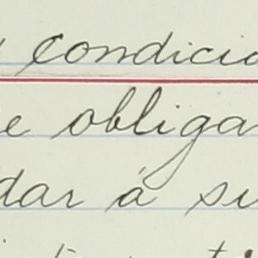 condicio
e obligar
dar á su